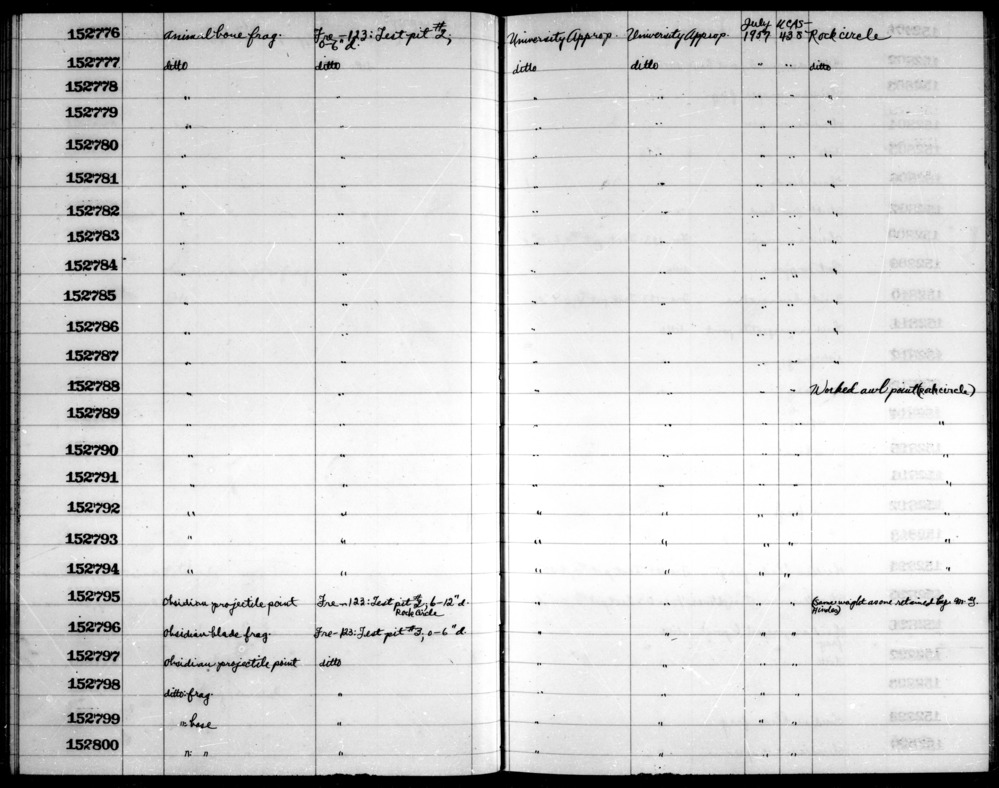 152776 animal bone frag. Fre-123: Test pit #2, 0-6" d. University Approp. University Approp. July 1957 UCAS-438 Rock circle
152777 ditto ditto ditto ditto " " ditto
152778 " " " " " " "
152779 " " " " " " "
152780 " " " " " " "
152781 " " " " " " "
152782 " " " " " " "
152783 " " " " " " "
152784 " " " " " " "
152785 " " " " " " "
152786 " " " " " " "
152787 " " " " " " "
152788 " " " " " " Worked awl point (rock circle)
152789 " " " " " " "
152790 " " " " " " "
152791 " " " " " " "
152792 " " " " " " "
152793 " " " " " " "
152794 " " " " " " "
152795 Obsidian projectile point Fre-123: Test pit #2, 6-12" d. Rock Circle " " " " (Same weight as one retained by M. Y. Hindes)
152796 Obsidian blade frag. Fre-123: Test pit #3, 0-6" d. " " " "
152797 Obsidian projectile point ditto " " " "
152798 ditto: frag. " " " " "
152799 ": base " " " " "
152800 ": " " " " " "